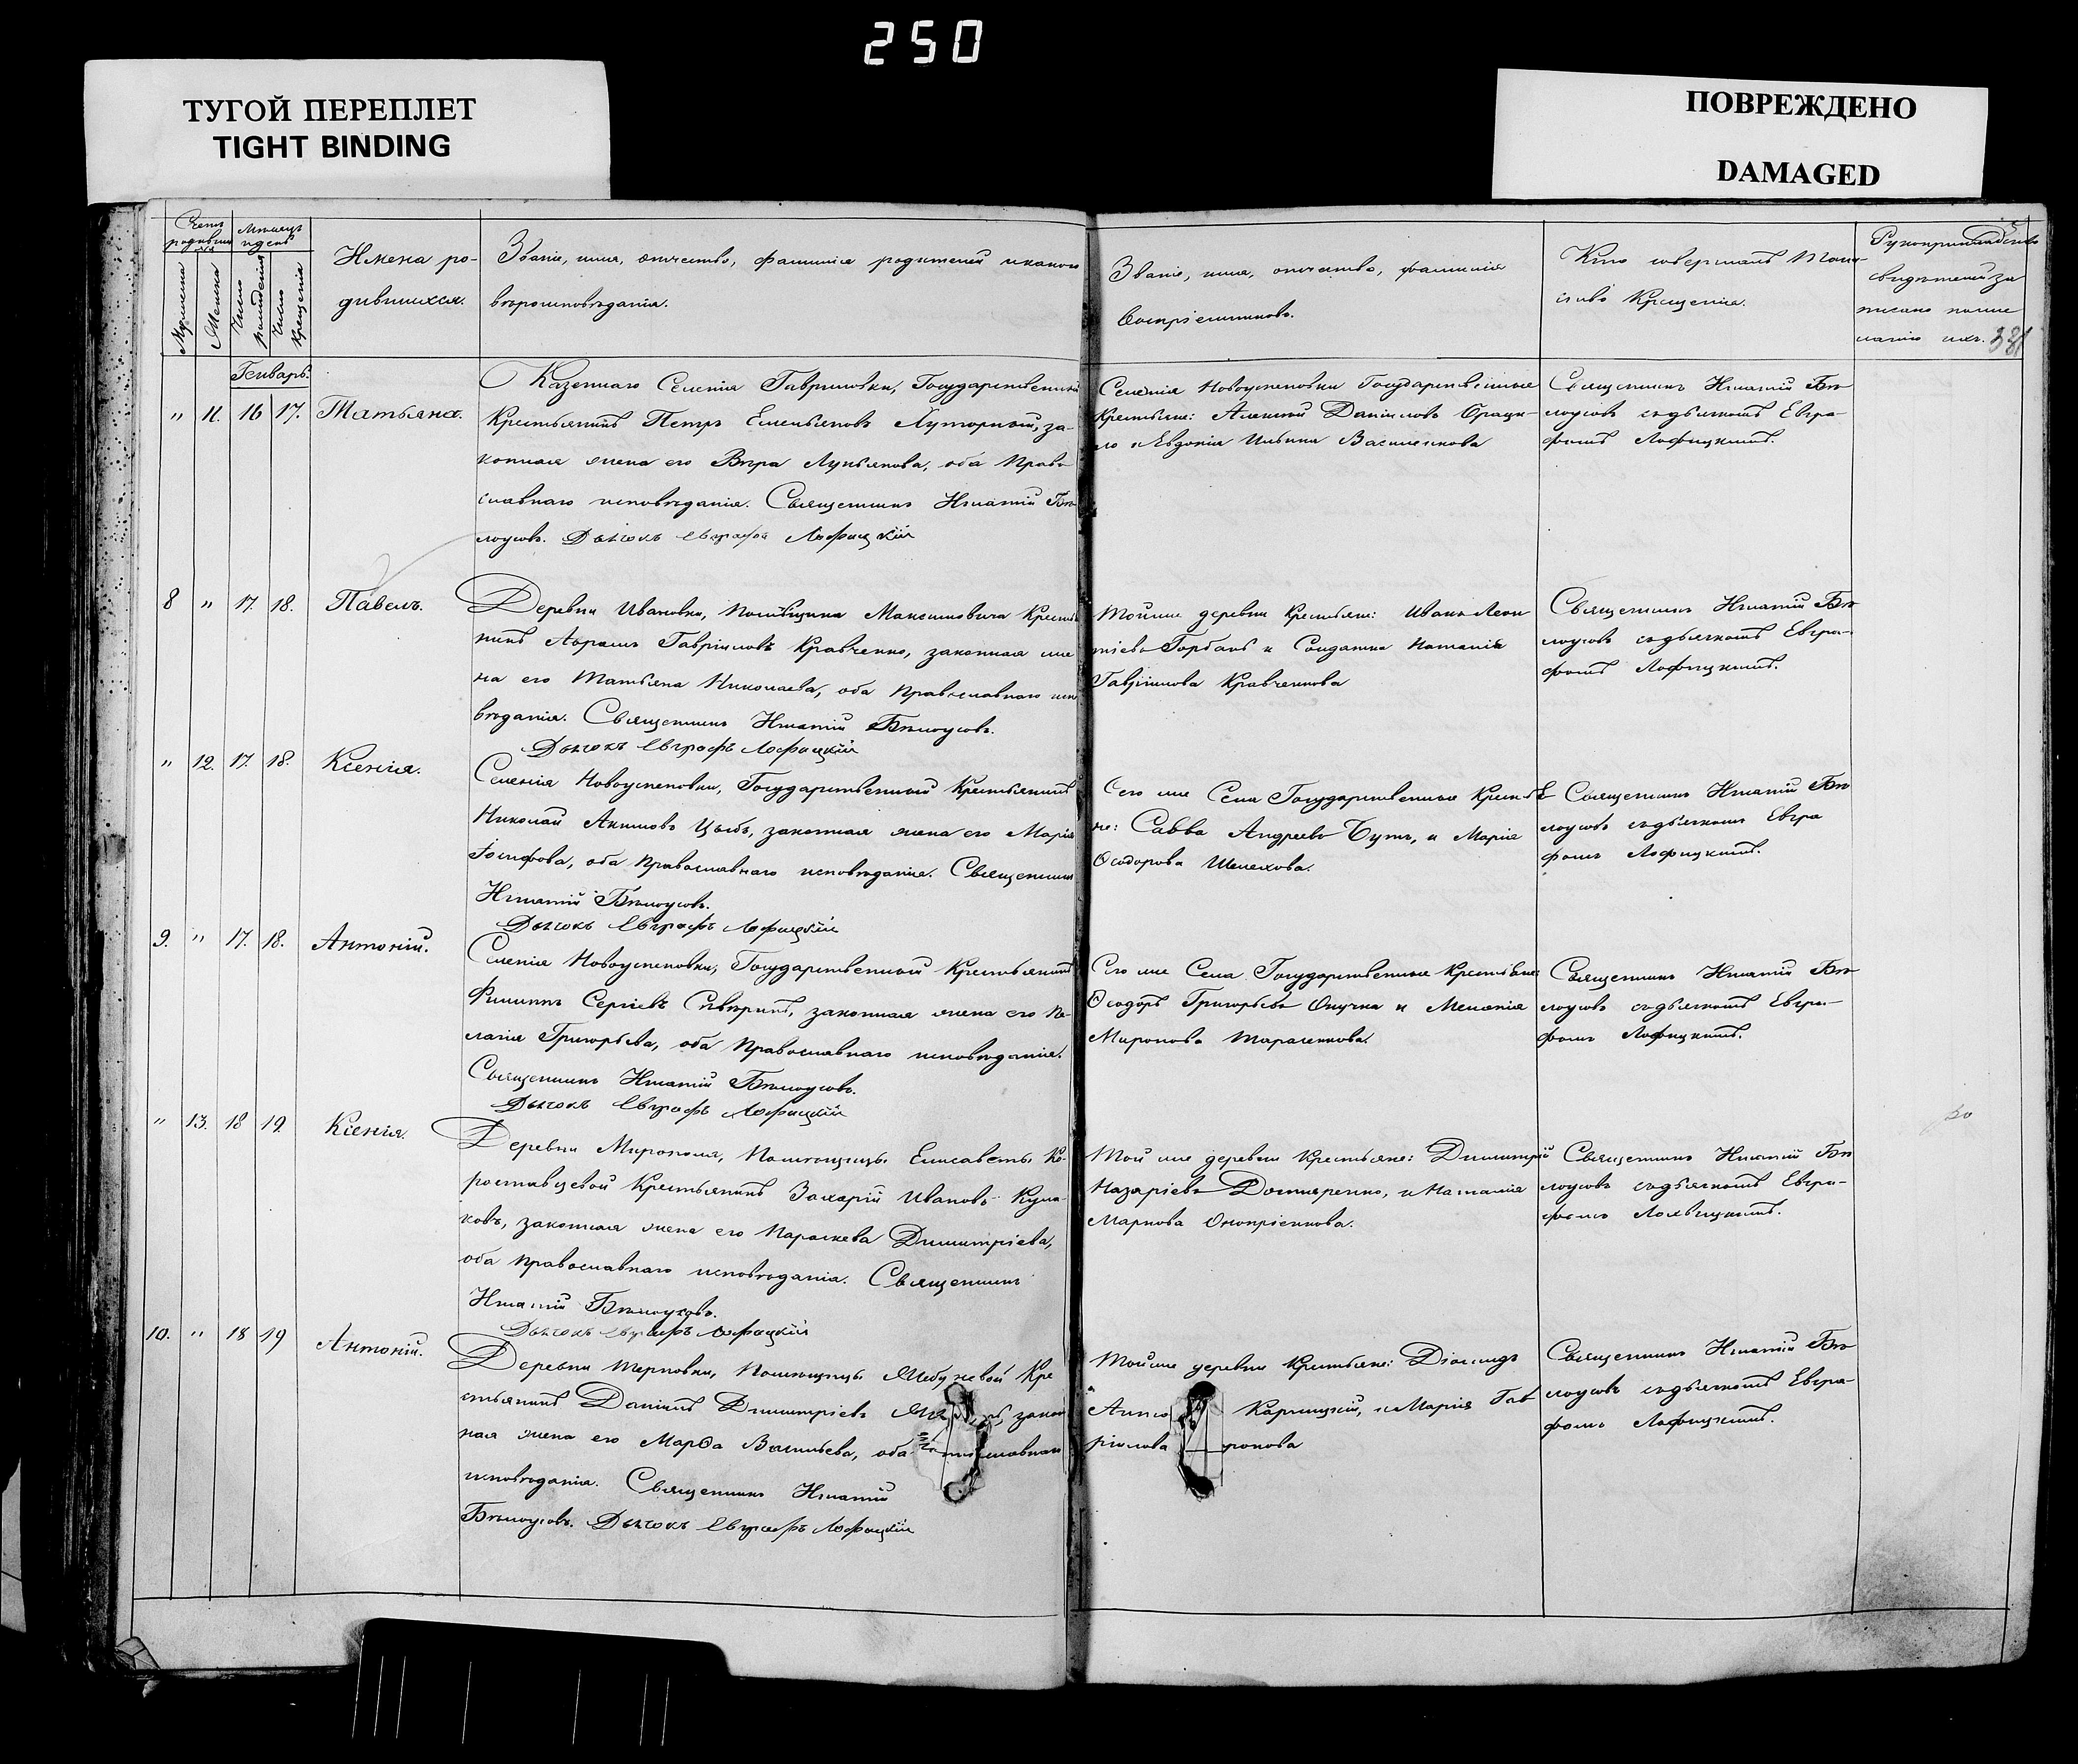 250
ТУГОЙ ПЕРЕПЛЕТ
TIGHT BINDING
ПОВРЕЖДЕНО
DAMAGED
Счетъ родившихся
Мужеска
Женска
Мѣсяцъ и день
Число рожденія
Число крещенія
Имена ро-
дившихся.
Званіе, имя, отчество, фамилія родителей и какого
вѣроисповѣданія.
Званіе, имя, отчество, фамилія
Воспріемниковъ.
Кто совершалъ Таин-
ство Крещенія.
Рукоприкладство
свидѣтелей за
писано по же
ланію ихъ.
381
Генварь.
" 11. 16 17. Татьяна.
Казеннаго Селенія Гавриловки, Государственный
Крестьянинъ Петръ Емельяновъ Хуторный, за-
конная жена его Вѣра Лукьянова, оба Право
славнаго исповѣданія. Священникъ Игнатій Бѣ
лоусовъ. Дьячокъ Евграфъ Лофицкій
Селенія Новоуспеновки Государственные
Крестьяне: Алексѣй Даніиловъ
и Евдокія Ильина Василенкова
Священникъ Игнатій Бѣ
лоусовъ съ дьячкомъ Евгра-
фомъ Лофицкимъ.
8 " 17. 18. Павелъ.
Деревни Ивановки, Помѣщика Максимовича Крестья
нинъ Абрамъ Гавріиловъ Кравченко, законная же
на его Татьяна Николаева, оба Православнаго испо
вѣданія. Священникъ Игнатій Бѣлоусовъ.
Дьячокъ Евграфъ Лофицкій
Той же деревни Крестьяне: Иванъ Леон
тіевъ Горбань и Солдатка Наталія
Гавріилова Кравченкова
Священникъ Игнатій Бѣ
лоусовъ съ дьячкомъ Евгра-
фомъ Лофицкимъ.
" 12. 17. 18. Ксенія.
Селенія Новоуспеновки, Государственный Крестьянинъ
Николай Акимовъ Цыбъ, законная жена его Марія
Іосифова, оба Православнаго исповѣданія. Священникъ
Игнатій Бѣлоусовъ.
Дьячокъ Евграфъ Лофицкій
Сего же Села Государственные Крестья
не: Савва Андреевъ Бутъ, и Марія
Ѳеодорова Шелехова.
Священникъ Игнатій Бѣ
лоусовъ съ дьячкомъ Евгра
фомъ Лофицкимъ.
9. " 17. 18. Антоній.
Селенія Новоуспеновки, Государственный Крестьянинъ
Филиппъ Сергіевъ Сѣверинъ, законная жена его Пе-
лагія Григорьева, оба Православнаго исповѣданія.
Священникъ Игнатій Бѣлоусовъ.
Дьячокъ Евграфъ Лофицкій
Сего же Села Государственные Крестьяне
Ѳеодоръ Григорьевъ Онучка и Меланія
Миронова Тарасенкова.
Священникъ Игнатій Бѣ
лоусовъ съ дьячкомъ Евгра-
фомъ Лофицкимъ.
" 13. 18 19. Ксенія.
Деревни Мирополя, Помѣщицы Елисаветы Ко-
роставцевой Крестьянинъ Захарій Ивановъ Кула-
ковъ, законная жена его Параскева Димитріева,
оба Православнаго исповѣданія. Священникъ
Игнатій Бѣлоусовъ.
Дьячокъ Евграфъ Лофицкій
Той же деревни Крестьяне: Димитрій
Назаріевъ и Наталія
Маркова Онопріенкова.
Священникъ Игнатій Бѣ
лоусовъ съ дьячкомъ Евгра-
фомъ Лофицкимъ.
10. " 18 19 Антоній.
Деревни Терновки, Помѣщицы Кре
стьянинъ Даніилъ Димитріевъ закон
ная жена его Марѳа Васильева, оба славнаго
исповѣданія. Священникъ Игнатій
Бѣлоусовъ. Дьячокъ Евграфъ Лофицкій
Той же деревни Крестьяне: Діомидъ
и Марія Гав
ріилова
Священникъ Игнатій Бѣ
лоусовъ съ дьячкомъ Евгра-
фомъ Лофицкимъ.